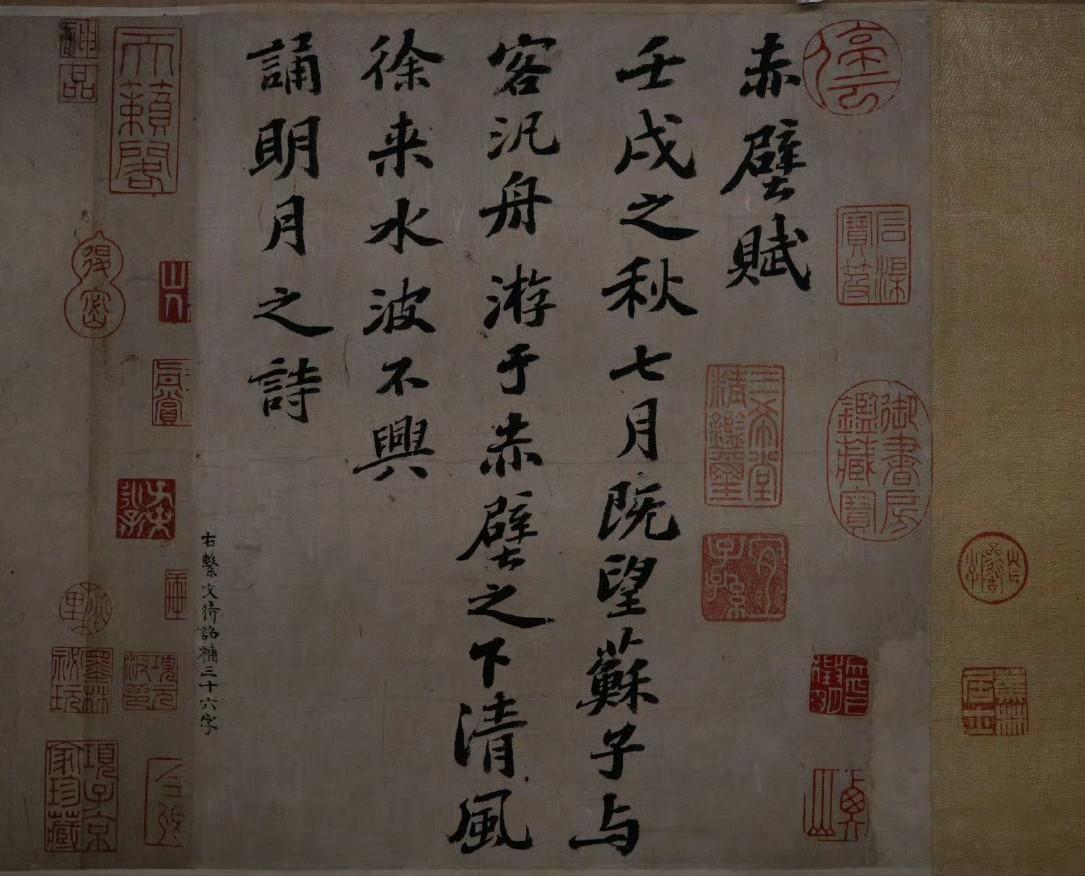 蕉林居士
御書房鑑藏寶
赤壁賦
三希堂精鑑璽
宜子孫
壬戌之秋七月既望蘇子与
客汎舟游于赤壁之下清風
徐来水波不興
誦明月之詩
右繫文待詔補三十六字
天籟閣
項元汴印
墨林祕玩
項子京家珍藏